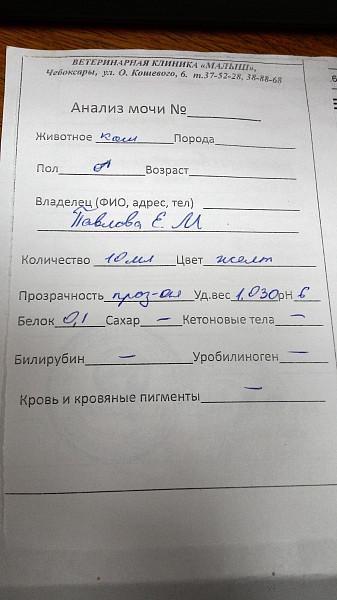 ВЕТЕРИНАРНАЯ КЛИНИКА «МАЛЫШ»,
Чебоксары, ул. О. Кошевого, 6. т.37-52-28, 38-88-68
Анализ мочи №
Животное кот Порода
Пол ♂ Возраст
Владелец (ФИО, адрес, тел)
Павлова Е. М
Количество 10 мл Цвет желт
Прозрачность проз-ая Уд.вес 1,030 рН 6
Белок 0,1 Сахар — Кетоновые тела —
Билирубин — Уробилиноген —
Кровь и кровяные пигменты —